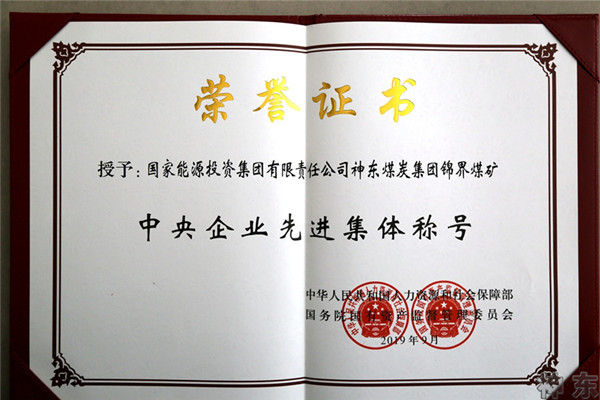 荣誉证书
授予：国家能源投资集团有限责任公司神东煤炭集团锦界煤矿
中央企业先进集体称号
中华人民共和国人力资源和社会保障部
国务院国有资产监督管理委员会
2019年9月
神东